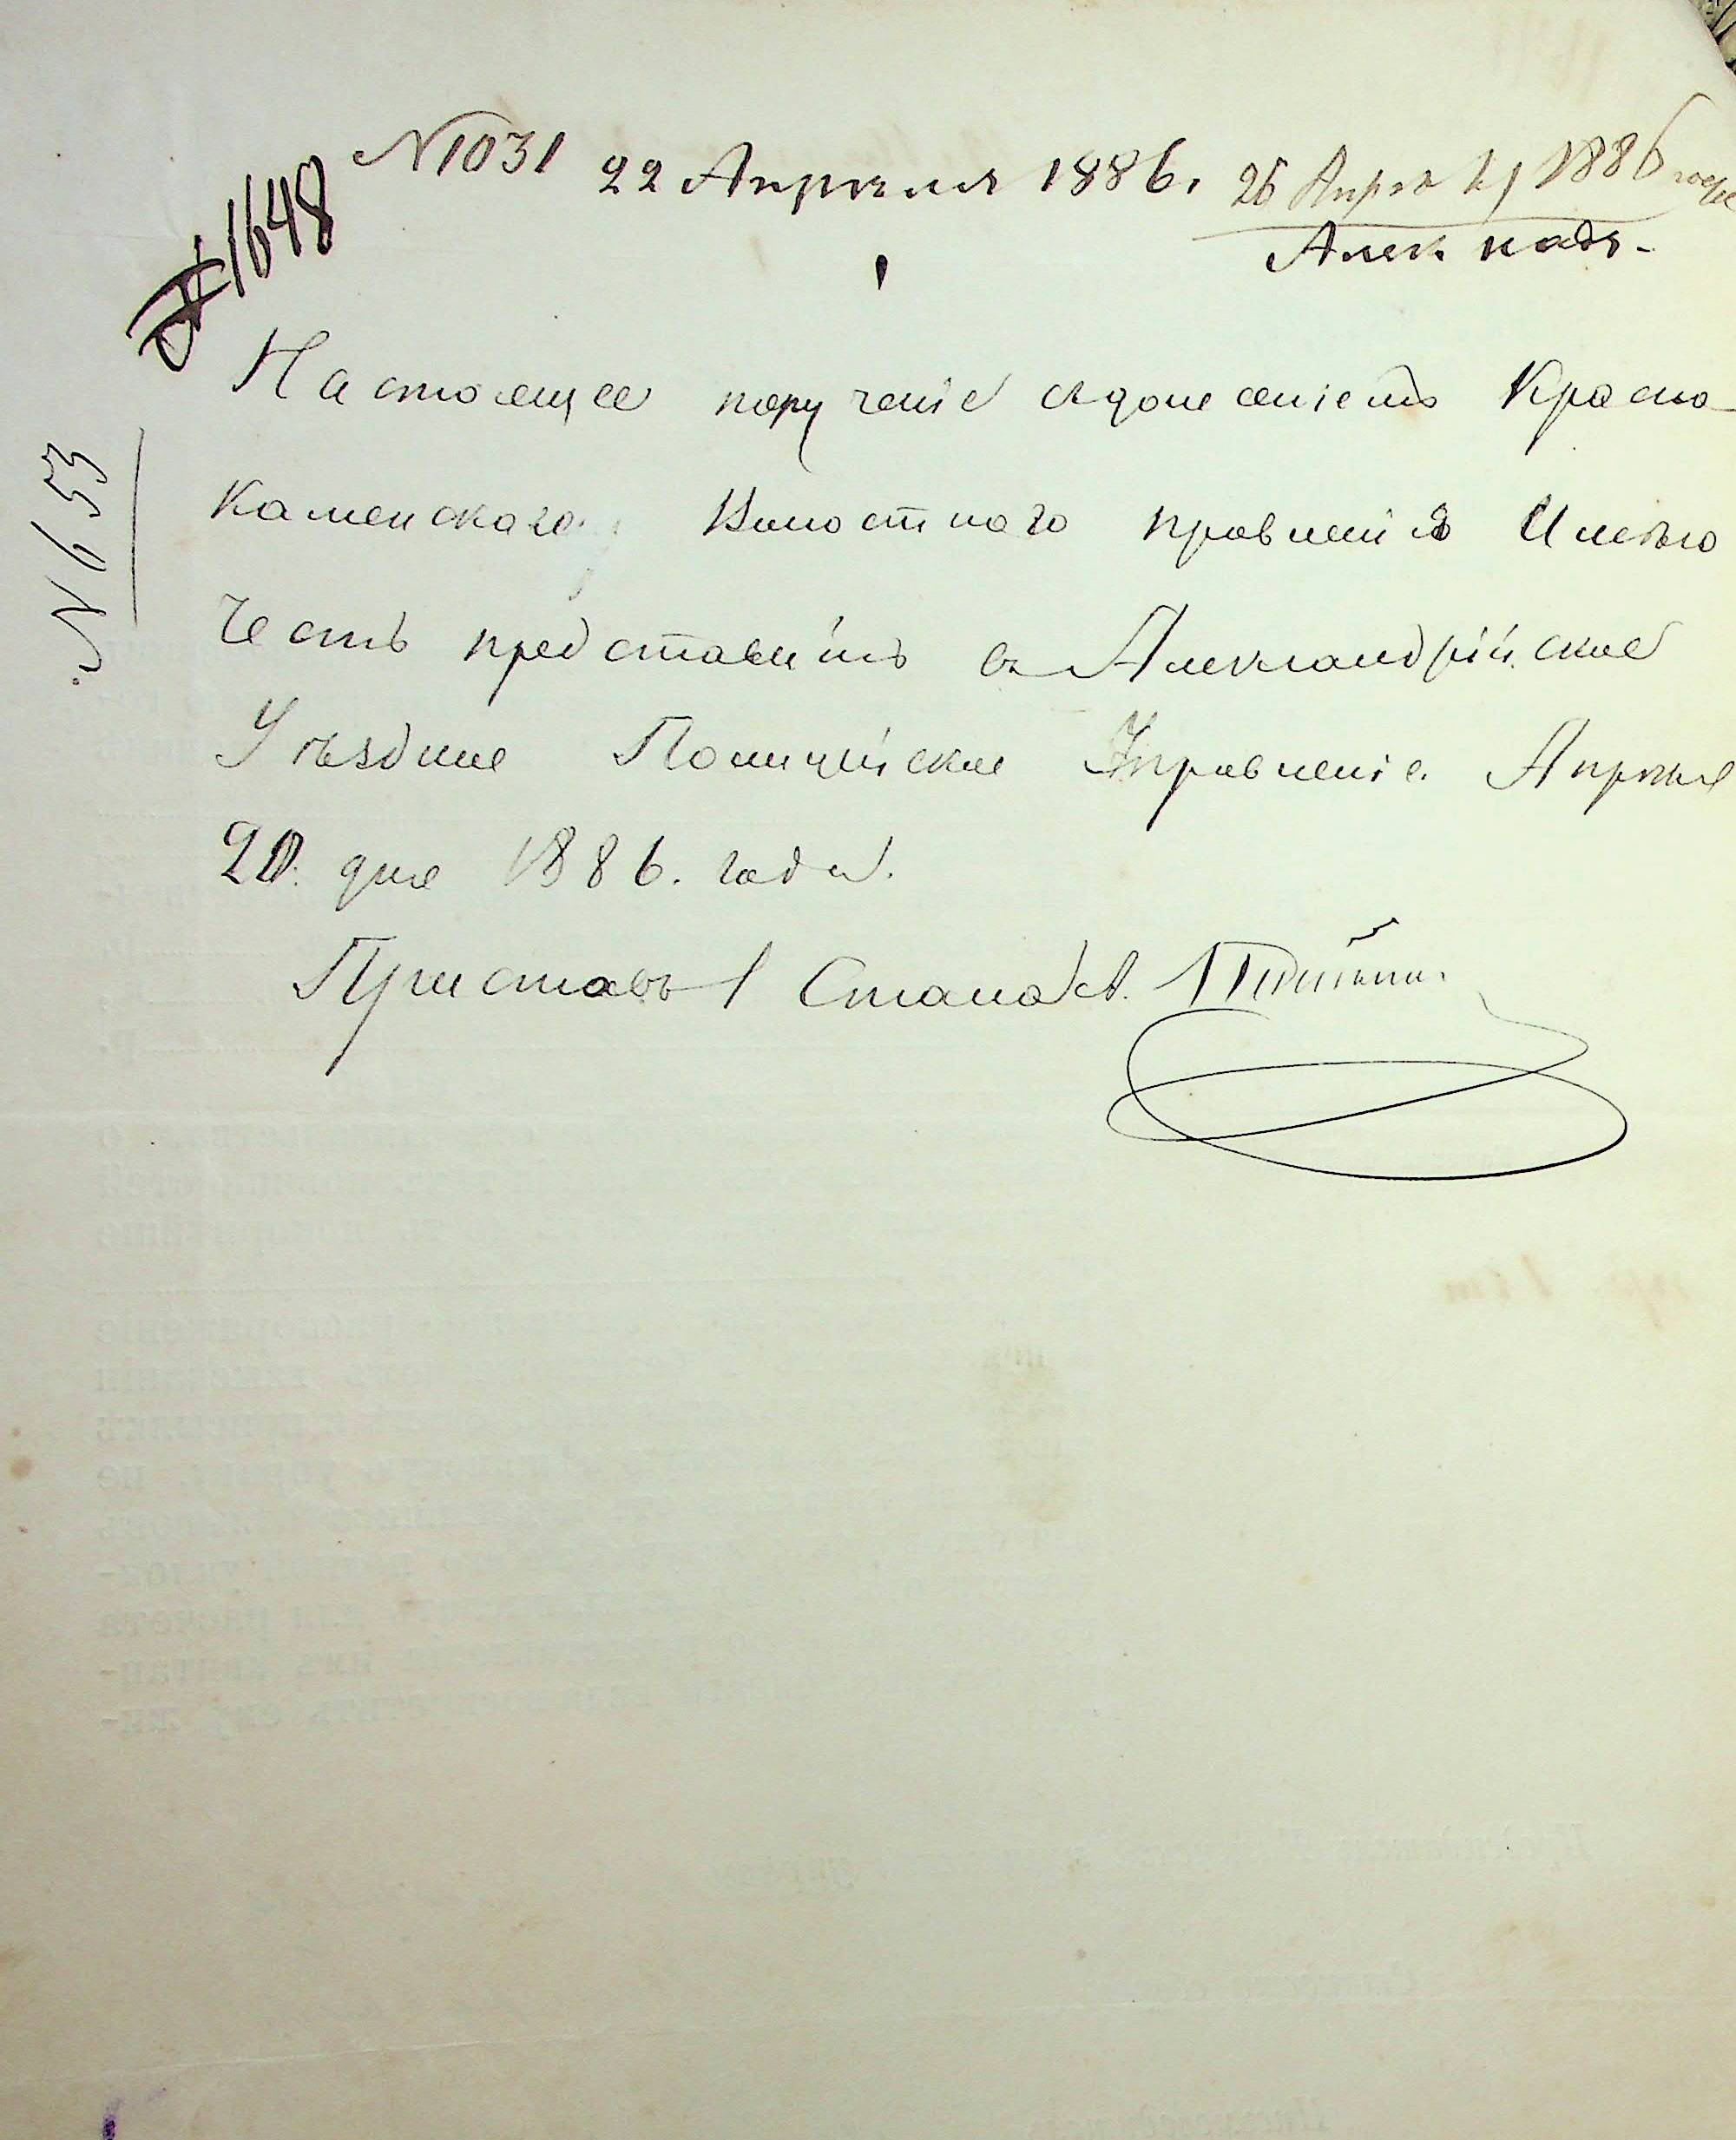 № 1648
№ 1031 22 Апрѣля 1886. 25 Апрѣ 1886 года
Алек. надз.
№ 653
Настоящее порученіе съдонесеніемъ Красно
каменского Волостного правленія Имѣю
Честь представить въ Александрійское
Уѣздное Полицейское Управленіе. Апрѣля
20. дня 1886. года.
Приставъ 1 Стана